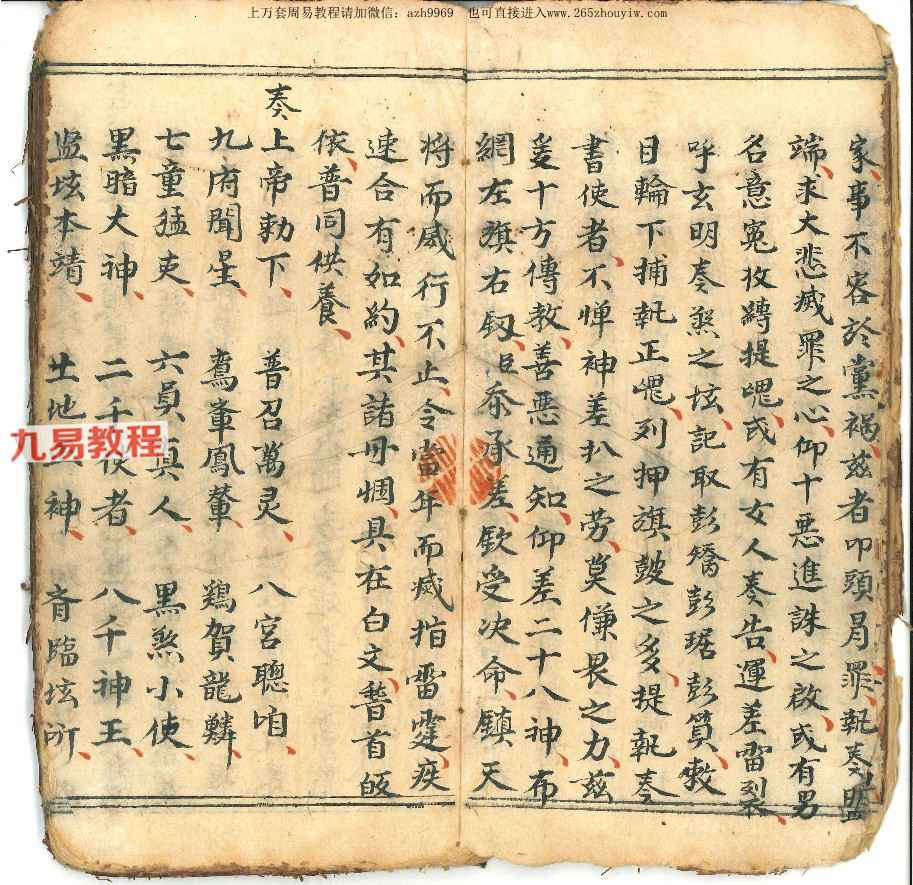 上万套周易教程请加微信：azh9969　也可直接进入www.265zhouyiw.com
家、事不容於黨禍、兹者叩頭肙罪、執奏盟
端、求大悲烕罪之心、仰十惡進誅之啟、或有男
名意冤攸縛提𠳹、或有女人奏告、運差雷
呼玄明奏煞之坛、記取彭矯彭琚彭質、敕
目輪下捕執正、列押旗鼓之多、提執奏
書使者、不惮神差扒之劳、莫慊畏之力、兹
十方傳教、善惡通知、仰差二十八神、布
網左旗右釼、承差、欽受决命、鎮天
将而威行不止、令當年而烕、指雷霆、疾
速合有如約、其諸毋惆、具在白文、首皈
依、普同供養、
奏
上帝勅下、 普召萬灵、 八宮聰咱、
九府聞星、 鸞輦鳳輦、 鶏賀龍驎、
七童猛吏、 六員真人、 黑煞小使、
黑暗大神、 二千使者、 八千神王、
盟坛本靖、 土地神、 斉臨坛所、
九易教程